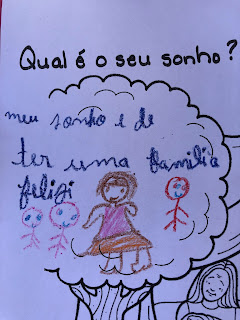 Qual é o seu sonho?
meu sonho e de
ter uma familia
felizi